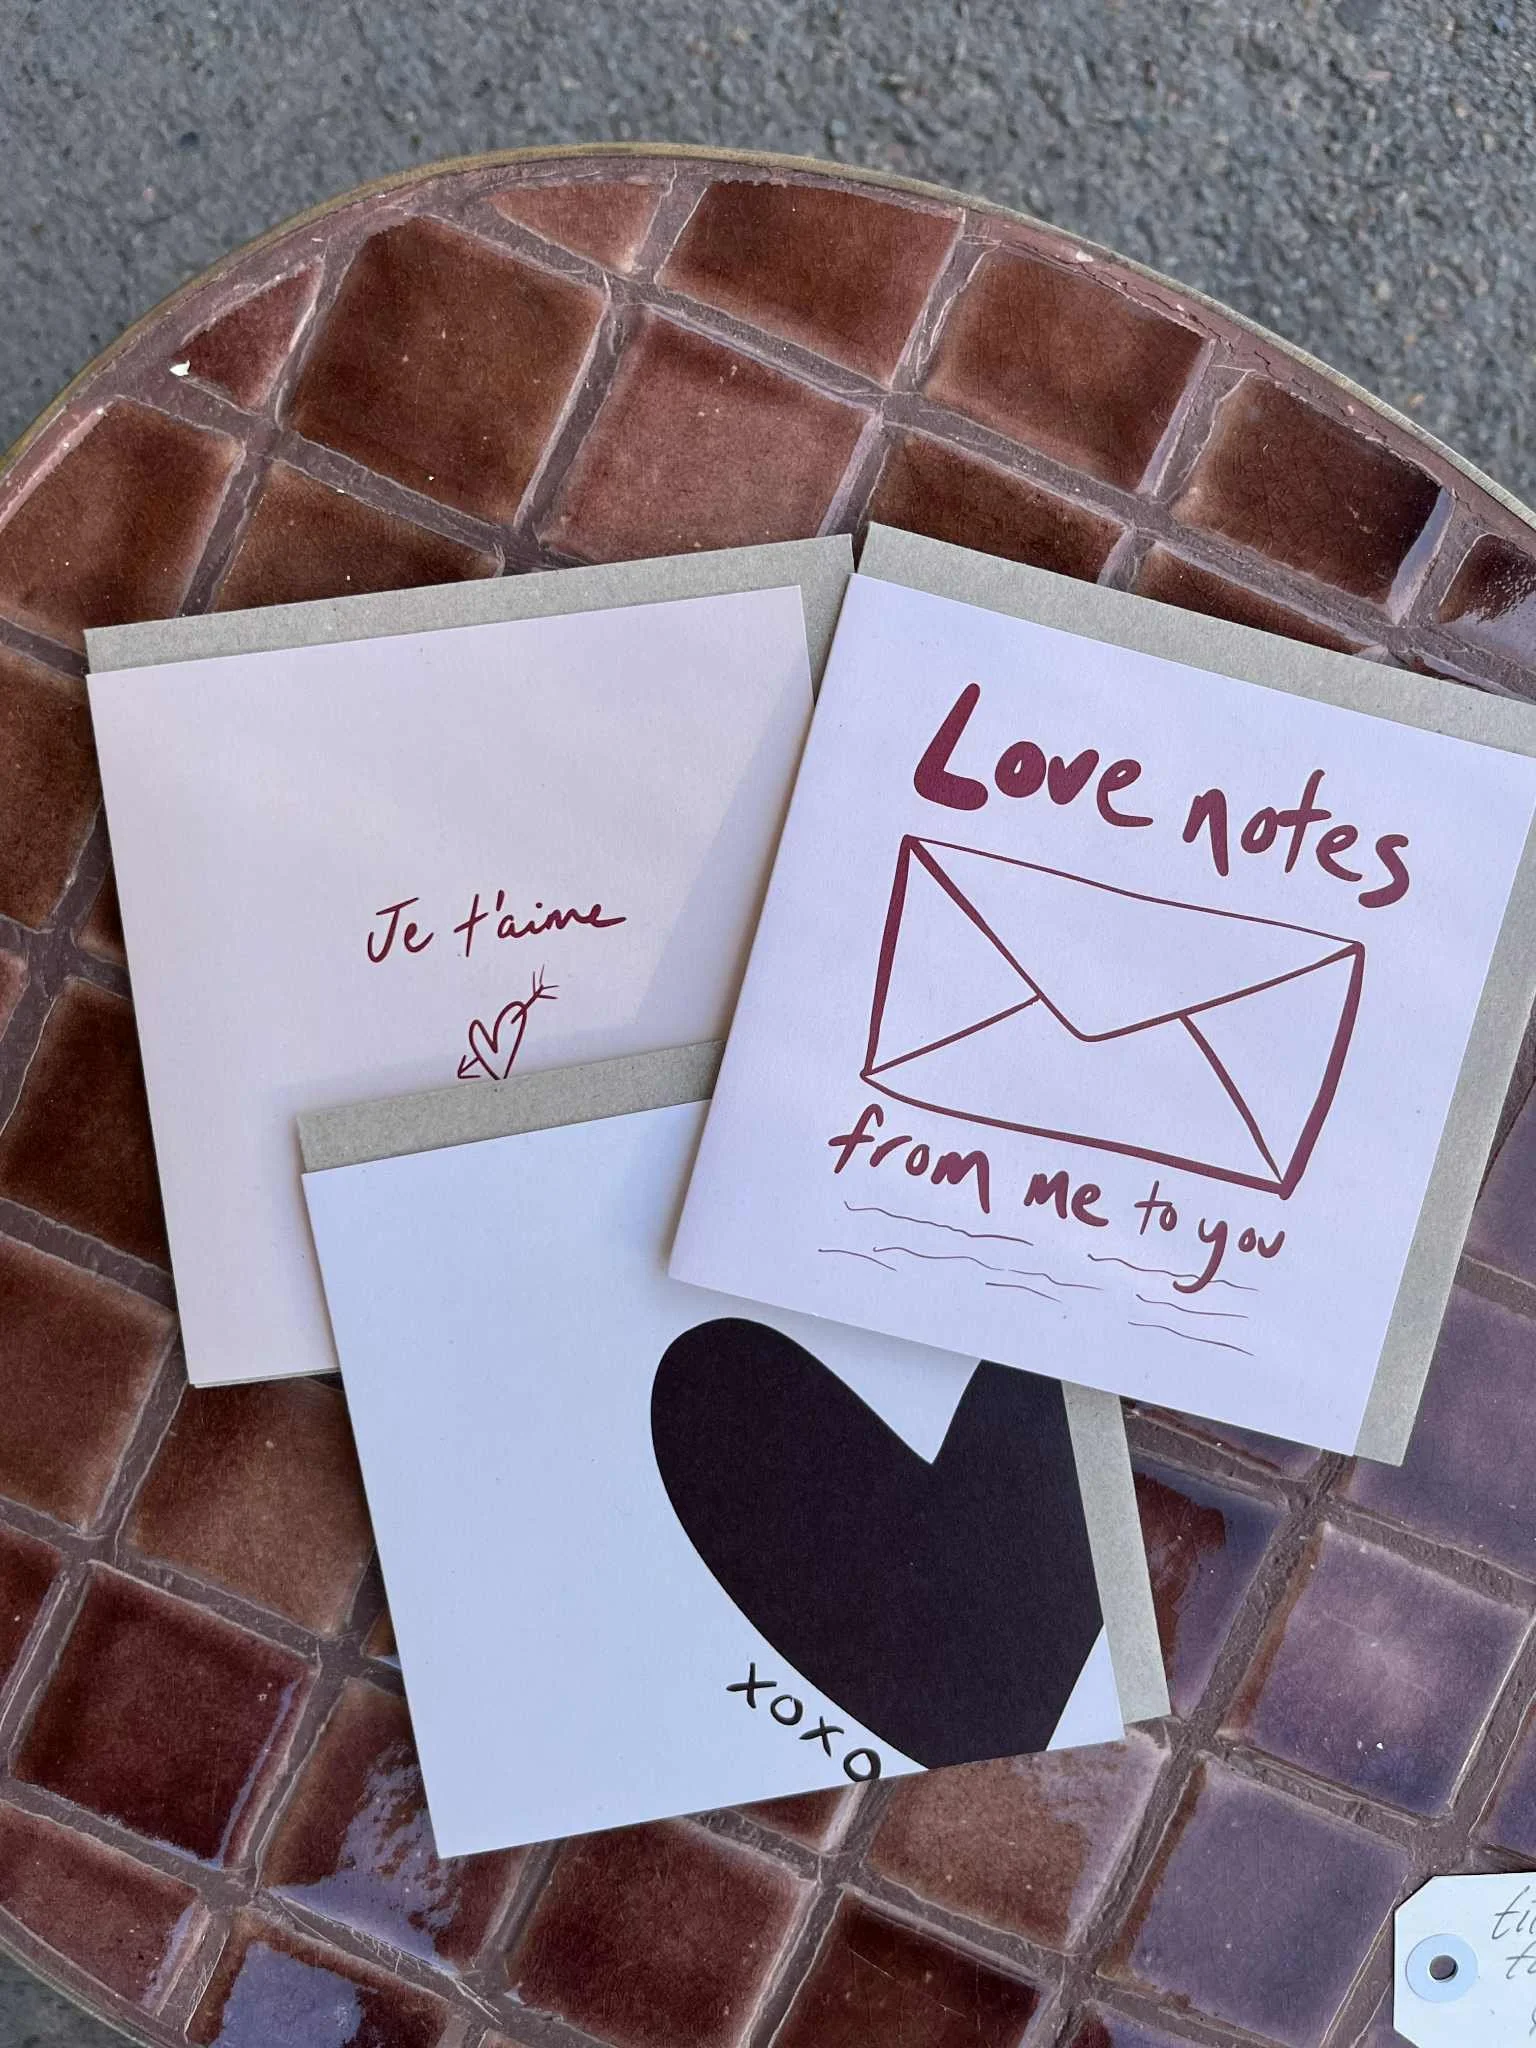 Je t'aime
Love notes
from me to you
xoxo